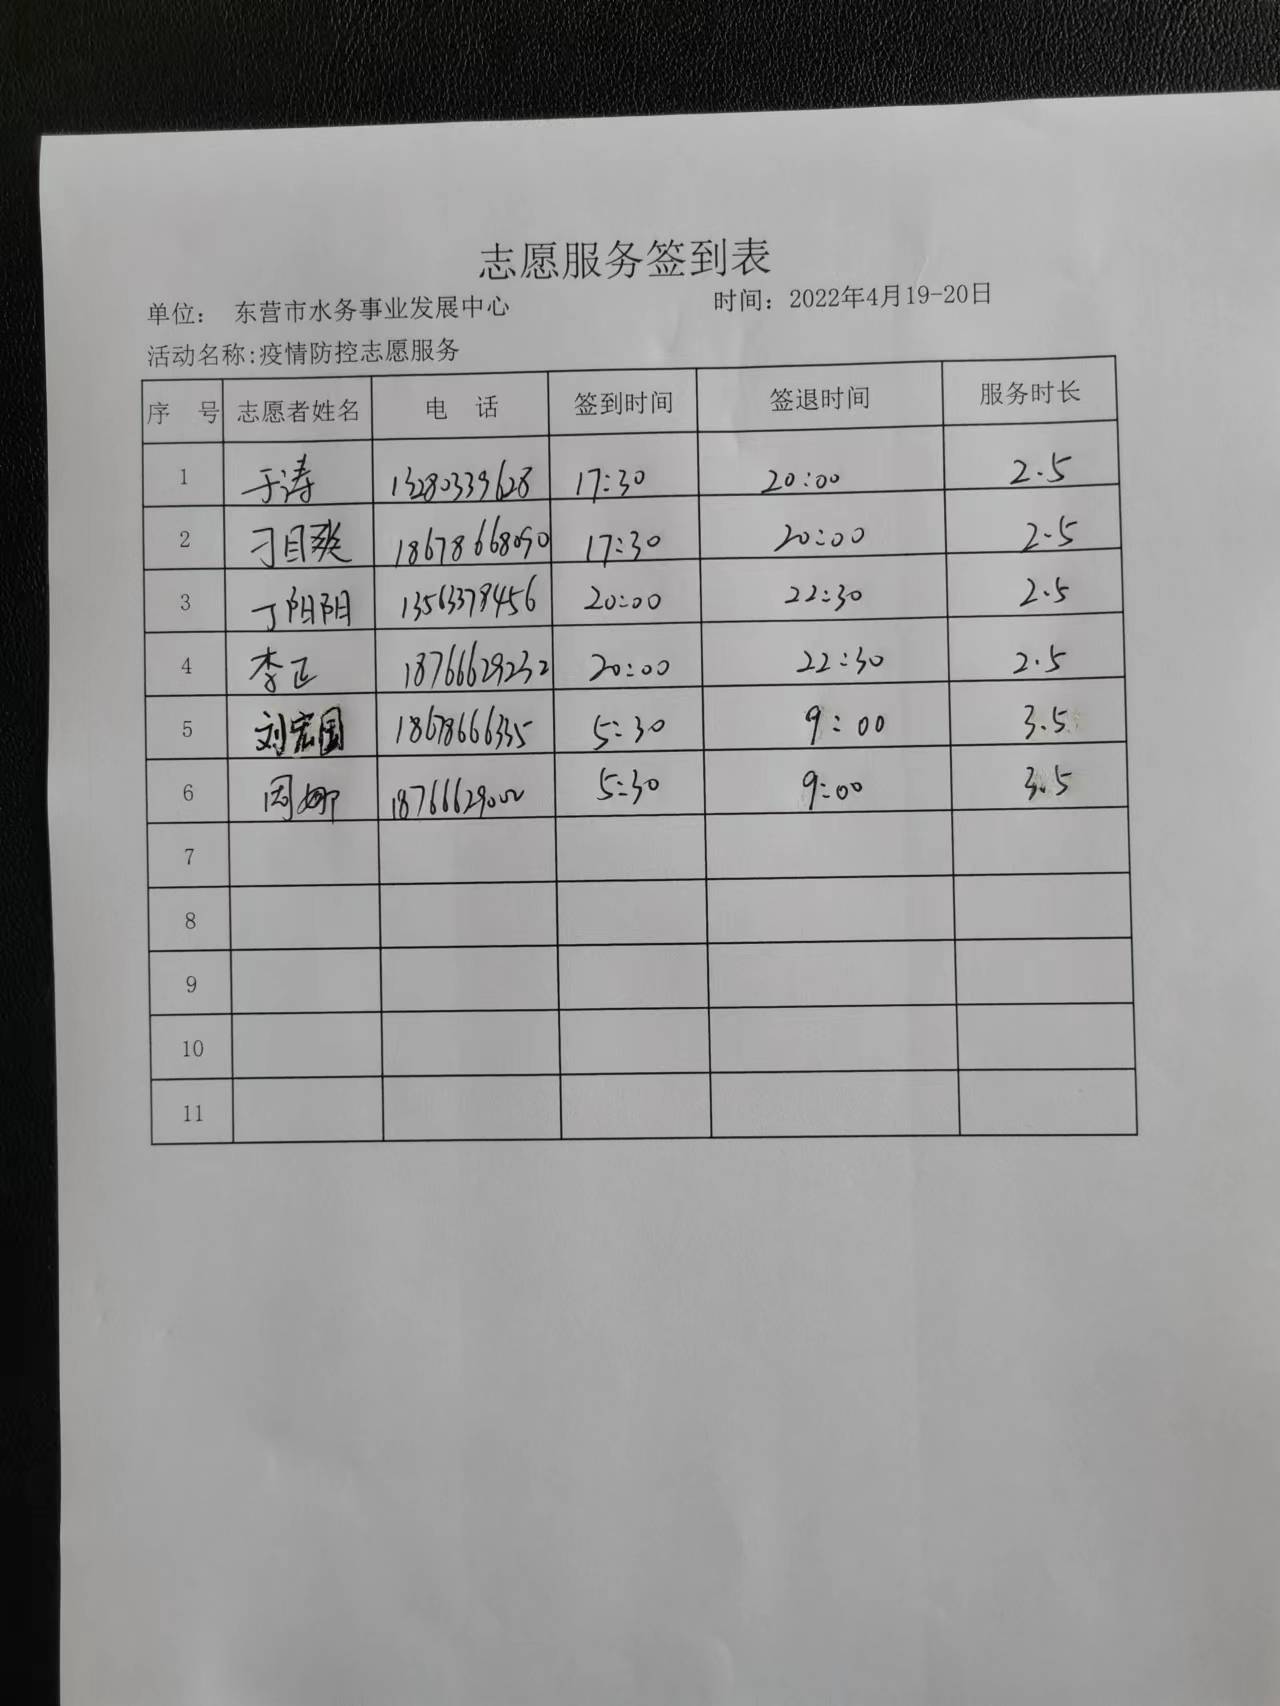 志愿服务签到表
单位： 东营市水务事业发展中心 时间：2022年4月19-20日
活动名称:疫情防控志愿服务
序 号 志愿者姓名 电 话 签到时间 签退时间 服务时长
1 于涛 13280339628 17:30 20:00 2.5
2 刁目爽 18678668090 17:30 20:00 2.5
3 丁阳阳 13563378456 20:00 22:30 2.5
4 李正 18766629232 20:00 22:30 2.5
5 刘宏国 18678666335 5:30 9:00 3.5
6 周娜 5:30 9:00 3.5
7
8
9
10
11